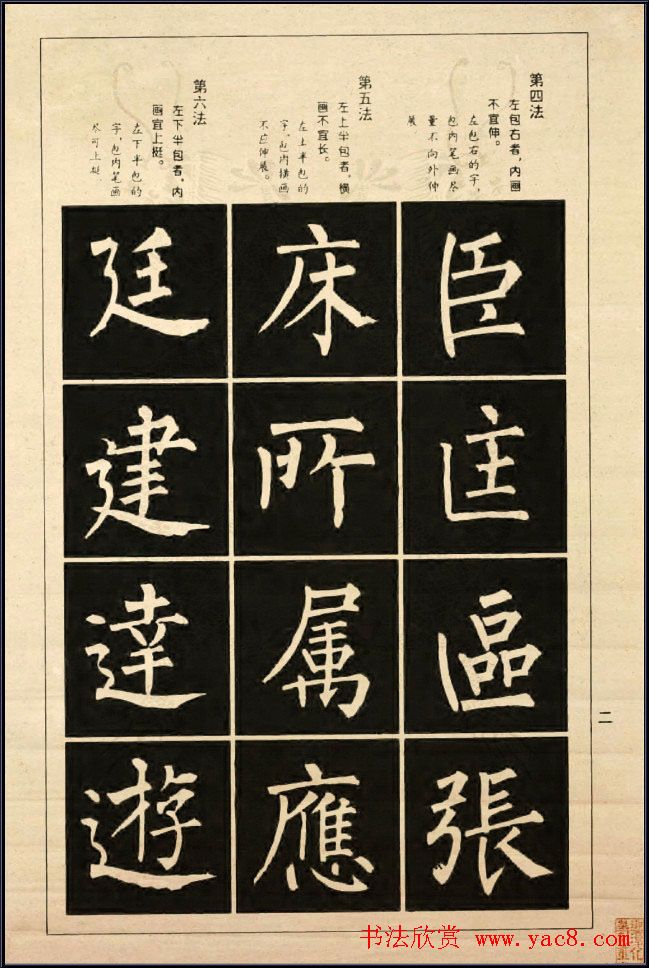 第四法
左包右者，内画
不宜伸。
左包右的字，
包内笔画尽
量不向外伸
展
臣
匡
區
張
第五法
左上半包者，横
画不宜长。
左上半包的
字，包内横画
不应伸展。
床
所
属
應
第六法
左下半包者，内
画宜上挺。
左下半包的
字，包内笔画
尽可上挺
廷
建
達
遊
二
书法欣赏 www.yac8.com